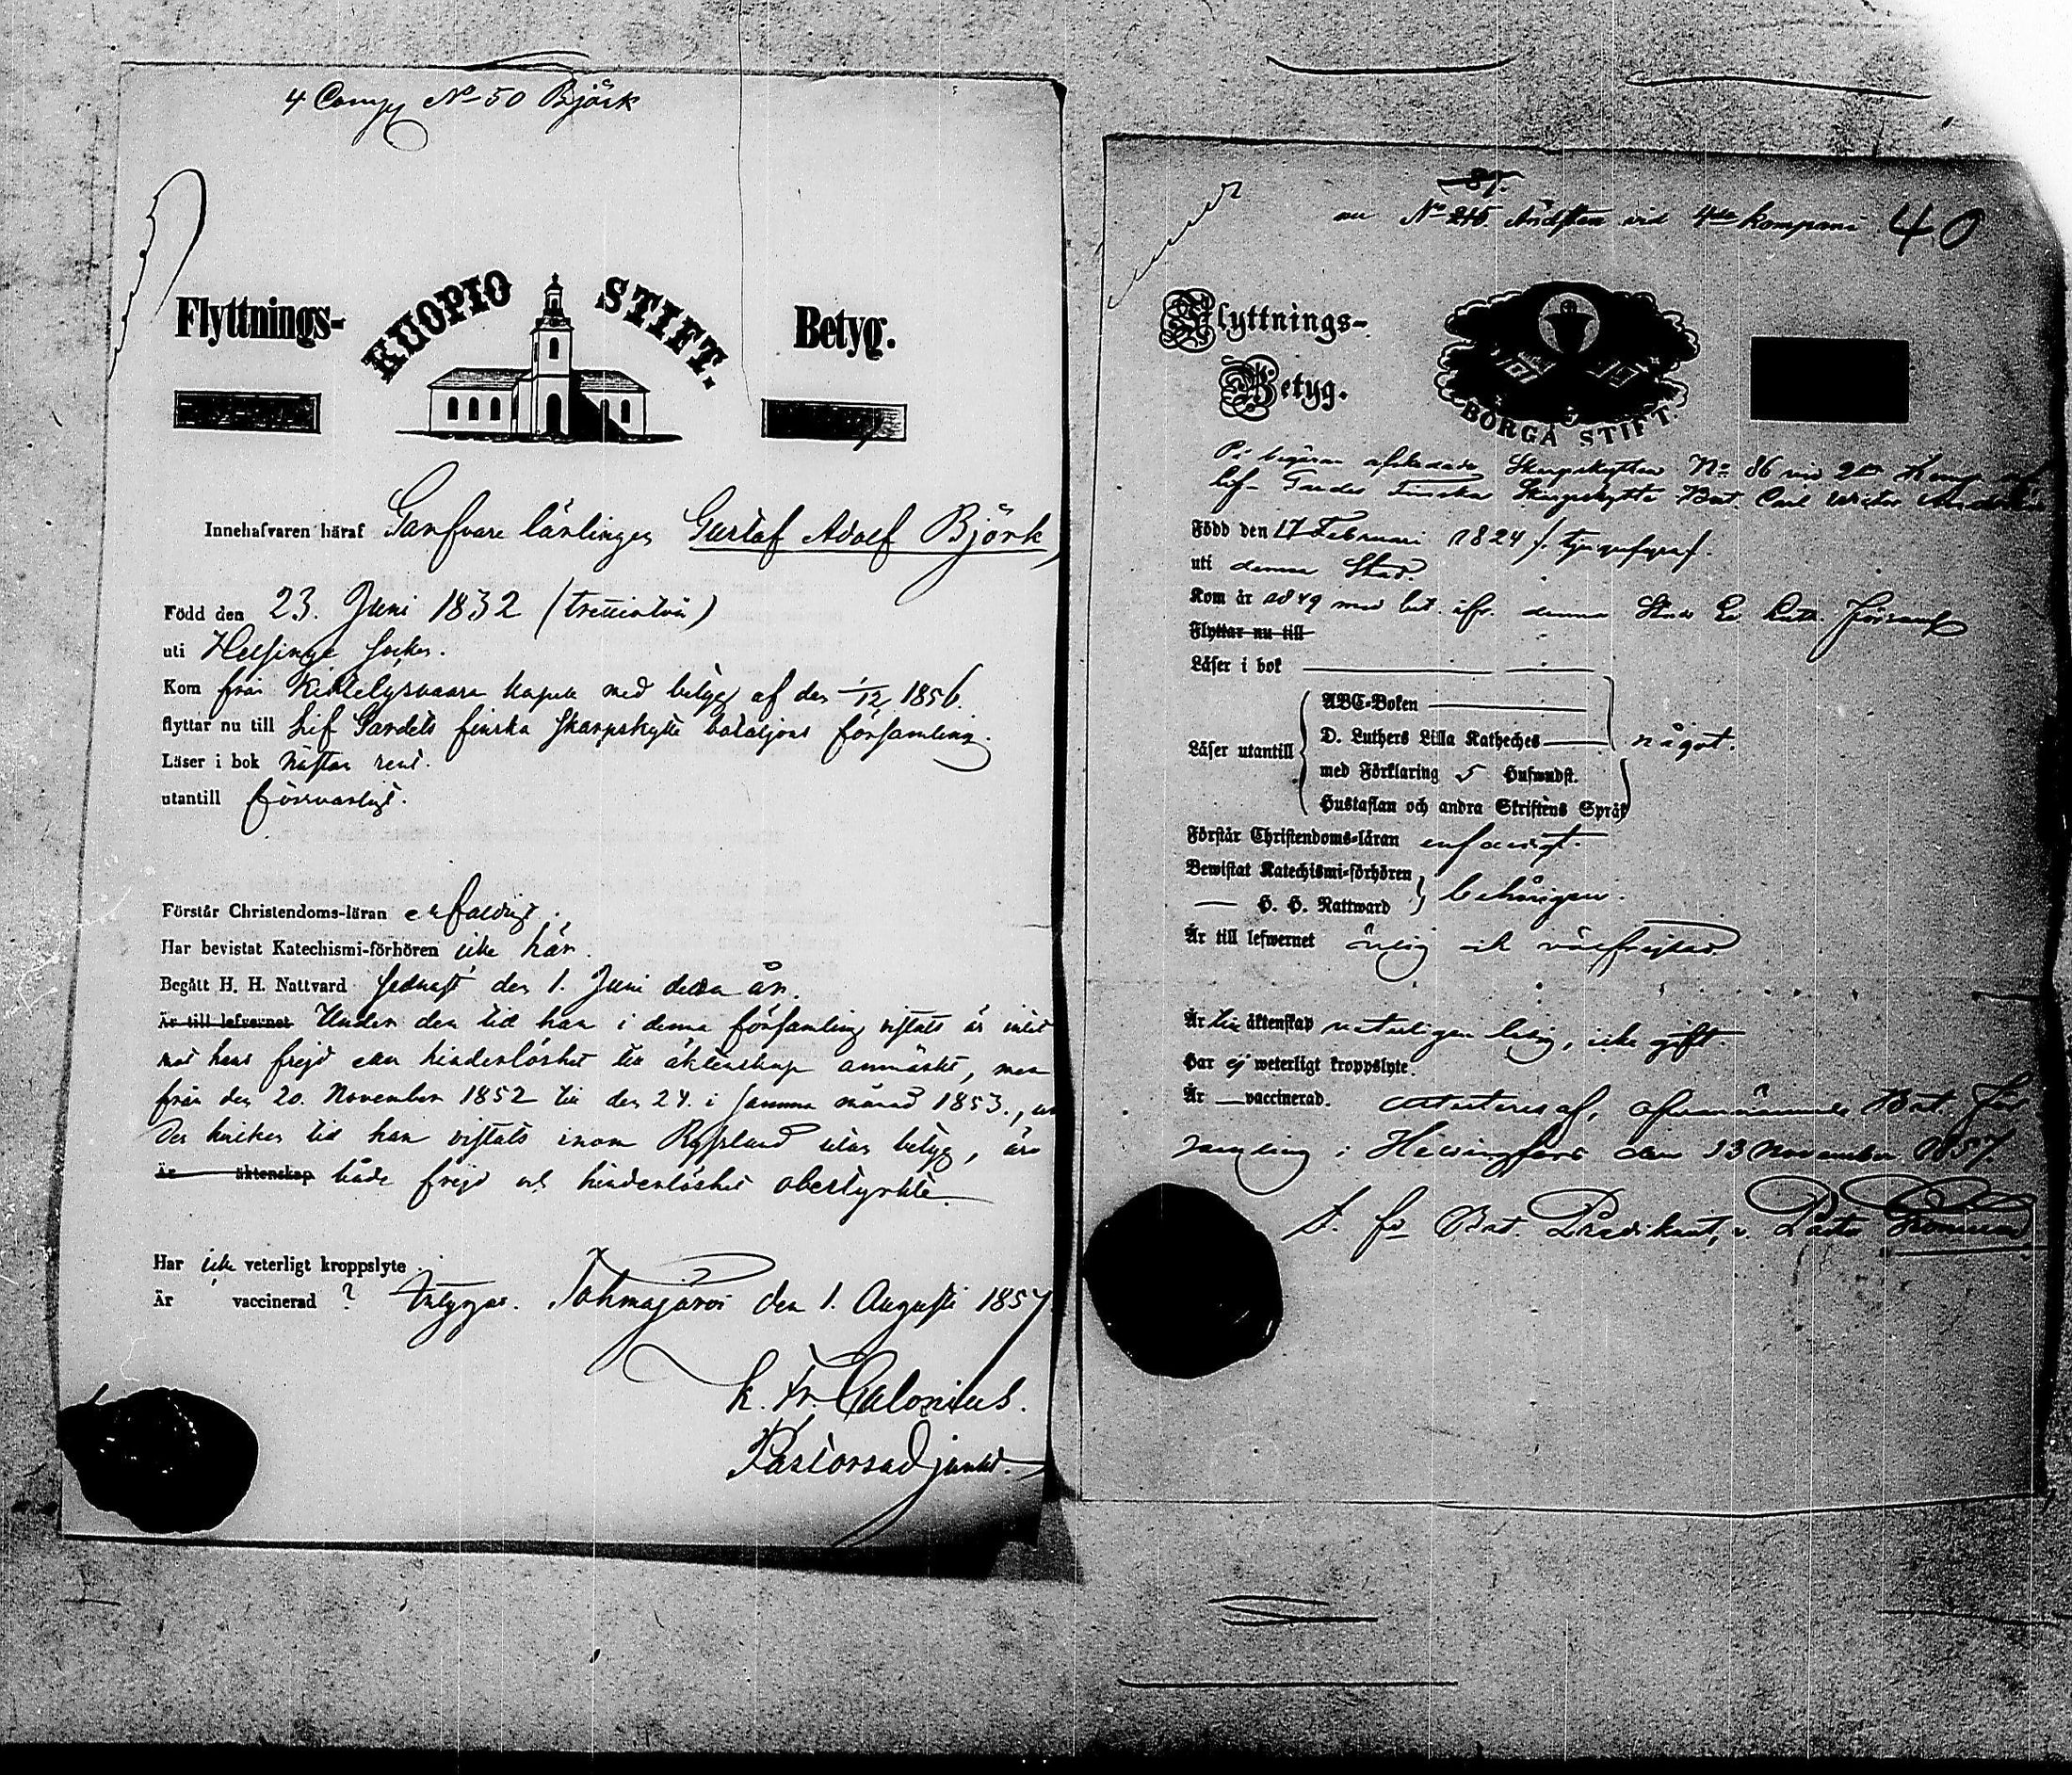 4 Comp N° 50 Björk
Flyttnings- KUOPIO STIFT. Betyg.
Innehafvaren häraf Garfvare lärlingen Gustaf Adolf Björk,
Född den 23. Juni 1832 (trettiotvå)
uti Helsinge Socken.
Kom från Kiihtelysvaara kapell med betyg af den 1/12 1856.
flyttar nu till Lif Gardets finska Skarpskytte bataljons församling.
Läser i bok nästan rent.
utantill försvarligt.
Förstår Christendoms-läran enfaldigt.
Har bevistat Katechismi-förhören icke här
Begått H. H. Nattvard sednast den 1. Juni detta år.
Är till lefvernet Under den tid han i denna församling vistats är intet
mot hans frejd eller hinderlöshet till äktenskap anmärkt, men
från den 20. November 1852 till den 24. i samma månad 1853.,
der hvilken tid han vistats inom Ryssland utan betyg, äro
Är äktenskap både frejd och hinderlöshet obestyrkte.
Har icke veterligt kroppslyte.
Är vaccinerad ? Intygar. Tohmajärvi den 1. Augusti 1857
K. Fr. Calonius.
Pastorsadjunkt.
87.
nu N° 245. vid 4de kompani 40
Flyttnings-
Betyg.
BORGÅ STIFT.
På begäran afskedade Skarpskytten N° 86 vid 2
Lif- Gardes Finska Skarpskytte Bat. Carl Victor
Född den 17 Februari 1824 /.
uti denna Stad.
Kom år 1849 med bet. ifr. denna Stads Ev. Luth. Församl
Flyttar nu till
Läser i bok
Läser utantill
ABC-Boken
D. Luthers Lilla Katheches
med Förklaring 5 Hufwudst.
Hustaflan och andra Skriftens Språk
något.
Förstår Christendoms-läran enfaldigt.
Bewistat Katechismi-förhören
— H. H. Nattward
behörigen.
Är till lefwernet ärlig och välfrejdad.
Är till äktenskap naturligen ledig, icke gift.
Har ej weterligt kroppslyte.
Är — vaccinerad. Attesteras af, ofvannämnde Bat. För
samling i Helsingfors den 13 November 1857.
t. f. Bat. Predikant, v. Pastor